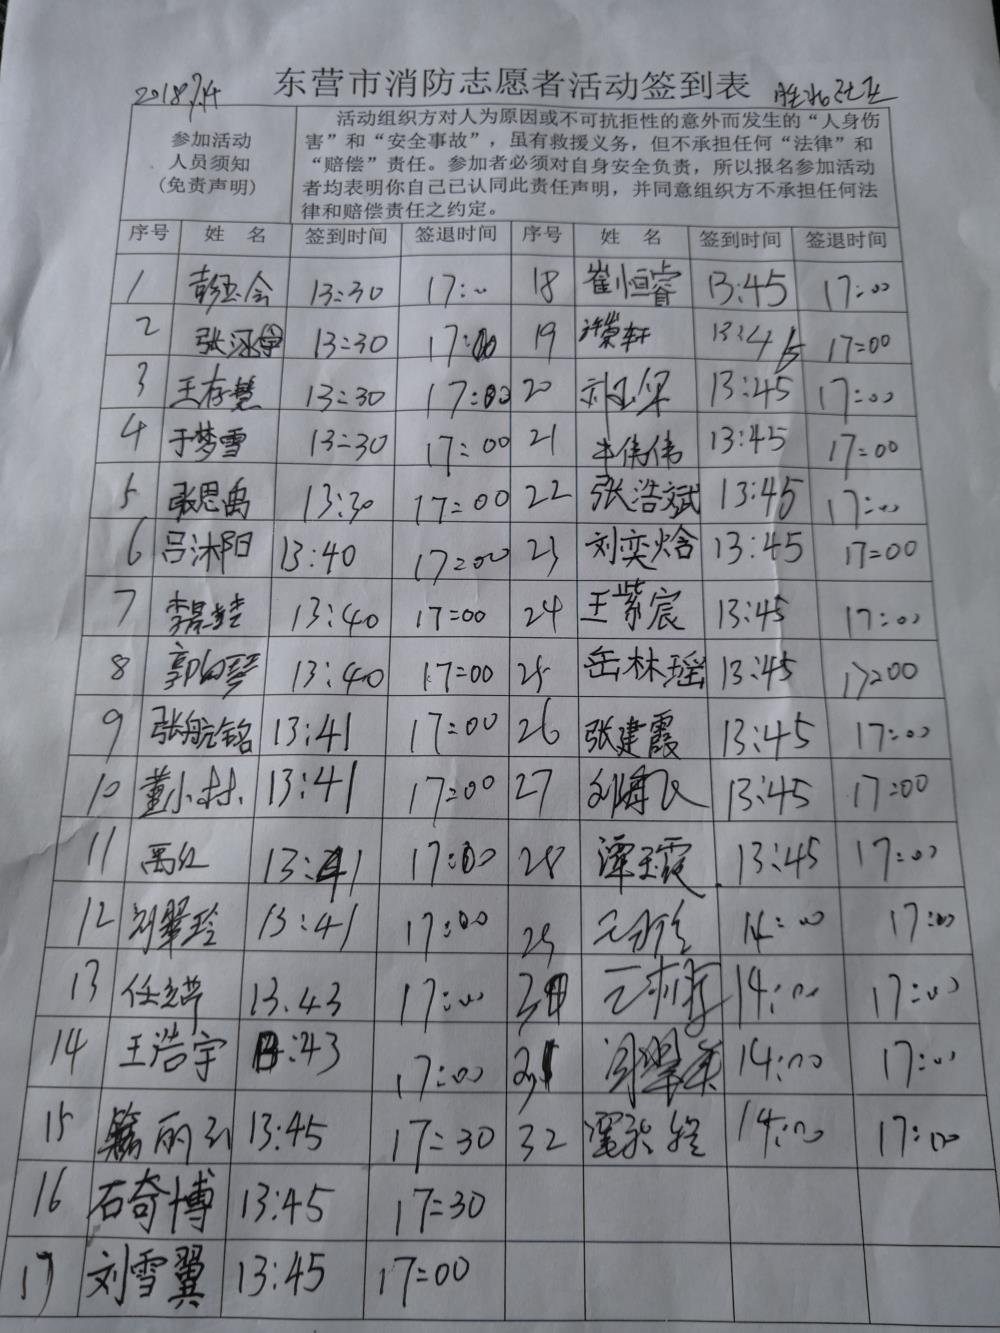 2018.7.14 东营市消防志愿者活动签到表
参加活动
人员须知
(免责声明)
活动组织方对人为原因或不可抗拒性的意外而发生的“人身伤
害”和“安全事故”，虽有救援义务，但不承担任何“法律”和
“赔偿”责任。参加者必须对自身安全负责，所以报名参加活动
者均表明你自己已认同此责任声明，并同意组织方不承担任何法
律和赔偿责任之约定。
序号 姓 名 签到时间 签退时间 序号 姓 名 签到时间 签退时间
1 13:30 17:00 18 崔恒睿 13:45 17:00
2 13:30 17:00 19 13:45 17:00
3 王存慧 13:30 17:00 20 13:45 17:00
4 于梦雪 13:30 17:00 21 牛伟伟 13:45 17:00
5 张思禹 13:30 17:00 22 张浩斌 13:45 17:00
6 吕沐阳 13:40 17:00 23 刘奕焓 13:45 17:00
7 13:40 17:00 24 王紫宸 13:45 17:00
8 13:40 17:00 25 岳林瑶 13:45 17:00
9 张航铭 13:41 17:00 26 张建霞 13:45 17:00
10 董小林 13:41 17:00 27 13:45 17:00
11 13:41 17:00 28 13:45 17:00
12 刘翠玲 13:41 17:00 29 14:00 17:00
13 13.43 17:00 30 14:00 17:00
14 王浩宇 13:43 17:00 31 刘翠英 14:00 17:00
15 13:45 17:30 32 14:00 17:00
16 石奇博 13:45 17:30
17 刘雪翼 13:45 17:00